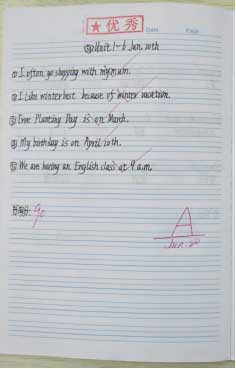 ★优秀
Date
Page
Unit 1-6 Jan. 20th
① I often go shopping with my mum.
② I like winter best because of winter vacation.
③ Tree Planting Day is on March.
④ My birthday is on April 10th.
⑤ We are having an English class at 9 a.m.
90
A
Jan. 20